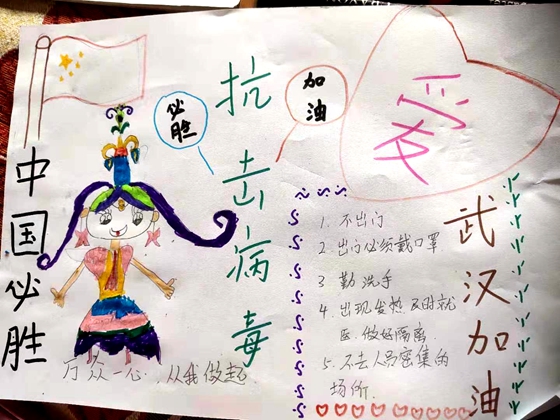 中国必胜
必胜
抗击病毒
加油
爱
武汉加油
1. 不出门
2 出门必须戴口罩
3 勤洗手
4. 出现发热及时就
医.做好隔离.
5. 不去人员密集的
场所.
万众一心,从我做起.